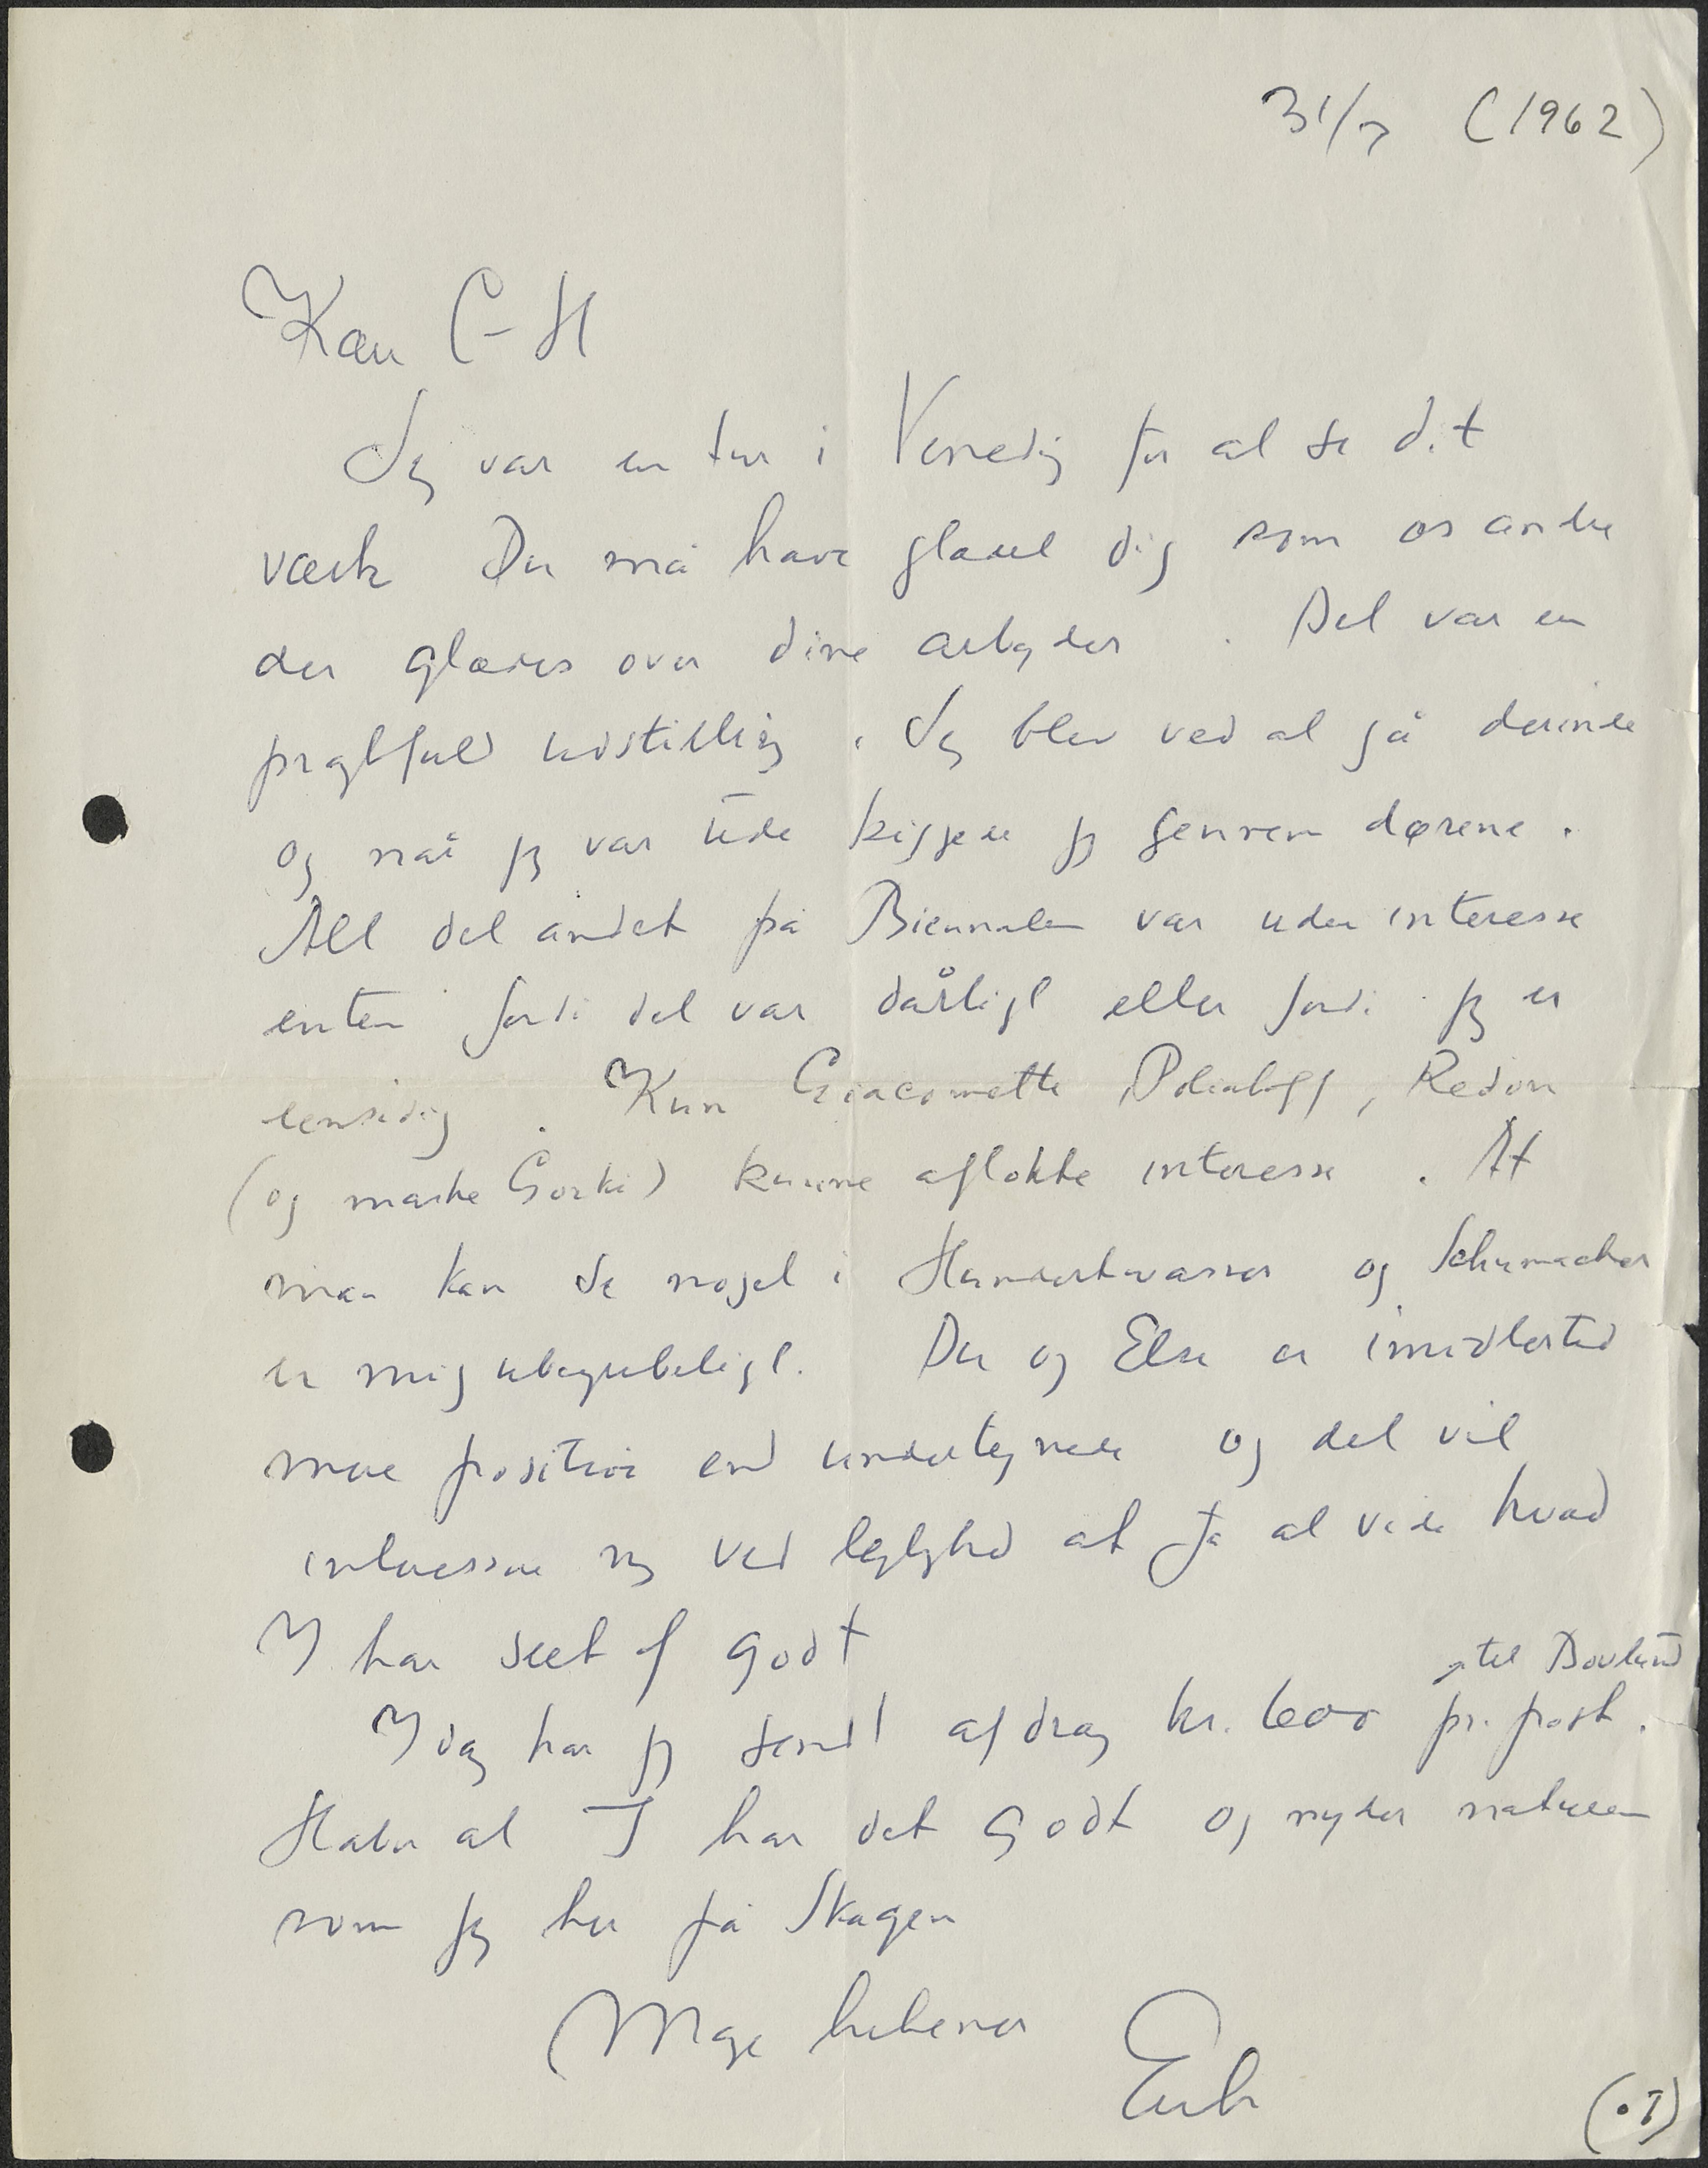 31/7 (1962)
Kære C-H
Jeg var en tur i Venedig for at se dit
værk Du må have glædet dig som os andre
der glædes over dine arbejder . Det var en
prægtfuld udstilling . Jeg blev ved at gå derinde
og når jeg var ude kiggede jeg gennem dørene .
Alt det andet på Biennalen var uden interesse
enten fordi det var dårligt eller fordi jeg er
eensidig . Kun Giacometti Poliakoff, Redon
(og maske Gorki) kunne aflokke interesse . At
man kan se noget i Hundertwasser og Schumacher
er mig ubegribeligt. Du og Else er imidlertid
mere positive end undertegnede og det vil
interessere mig ved lejlighed at få at vide hvad
I har seet af godt
til Bovlund
I dag har jeg sendt afdrag kr. 600 pr. post .
Håber at I har det godt og nyder naturen
som jeg her på Skagen
Mage hilsener
Erik
(• I)